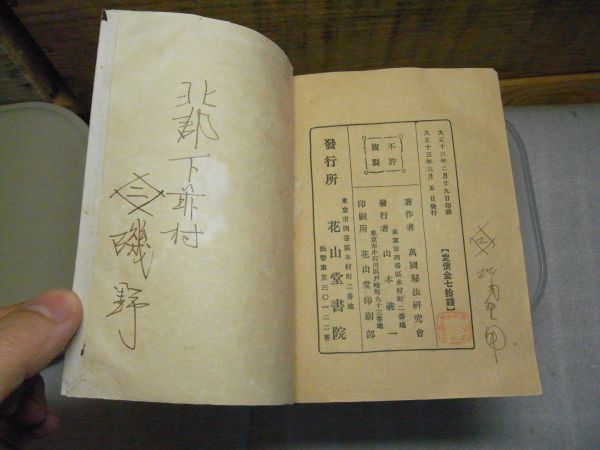 大正十三年二月廿九日印刷
大正十三年三月五日發行
【定價金七拾錢】
不許
複製
著作者 萬國秘法研究會
東京市四谷區本村町二番地
發行者 山本義一
東京市小石川區戸崎町九十三番地
印刷所 花山堂印刷部
發行所
東京市四谷區本村町二番地
花山堂書院
振替東京三〇一二二番
下
村
磯野